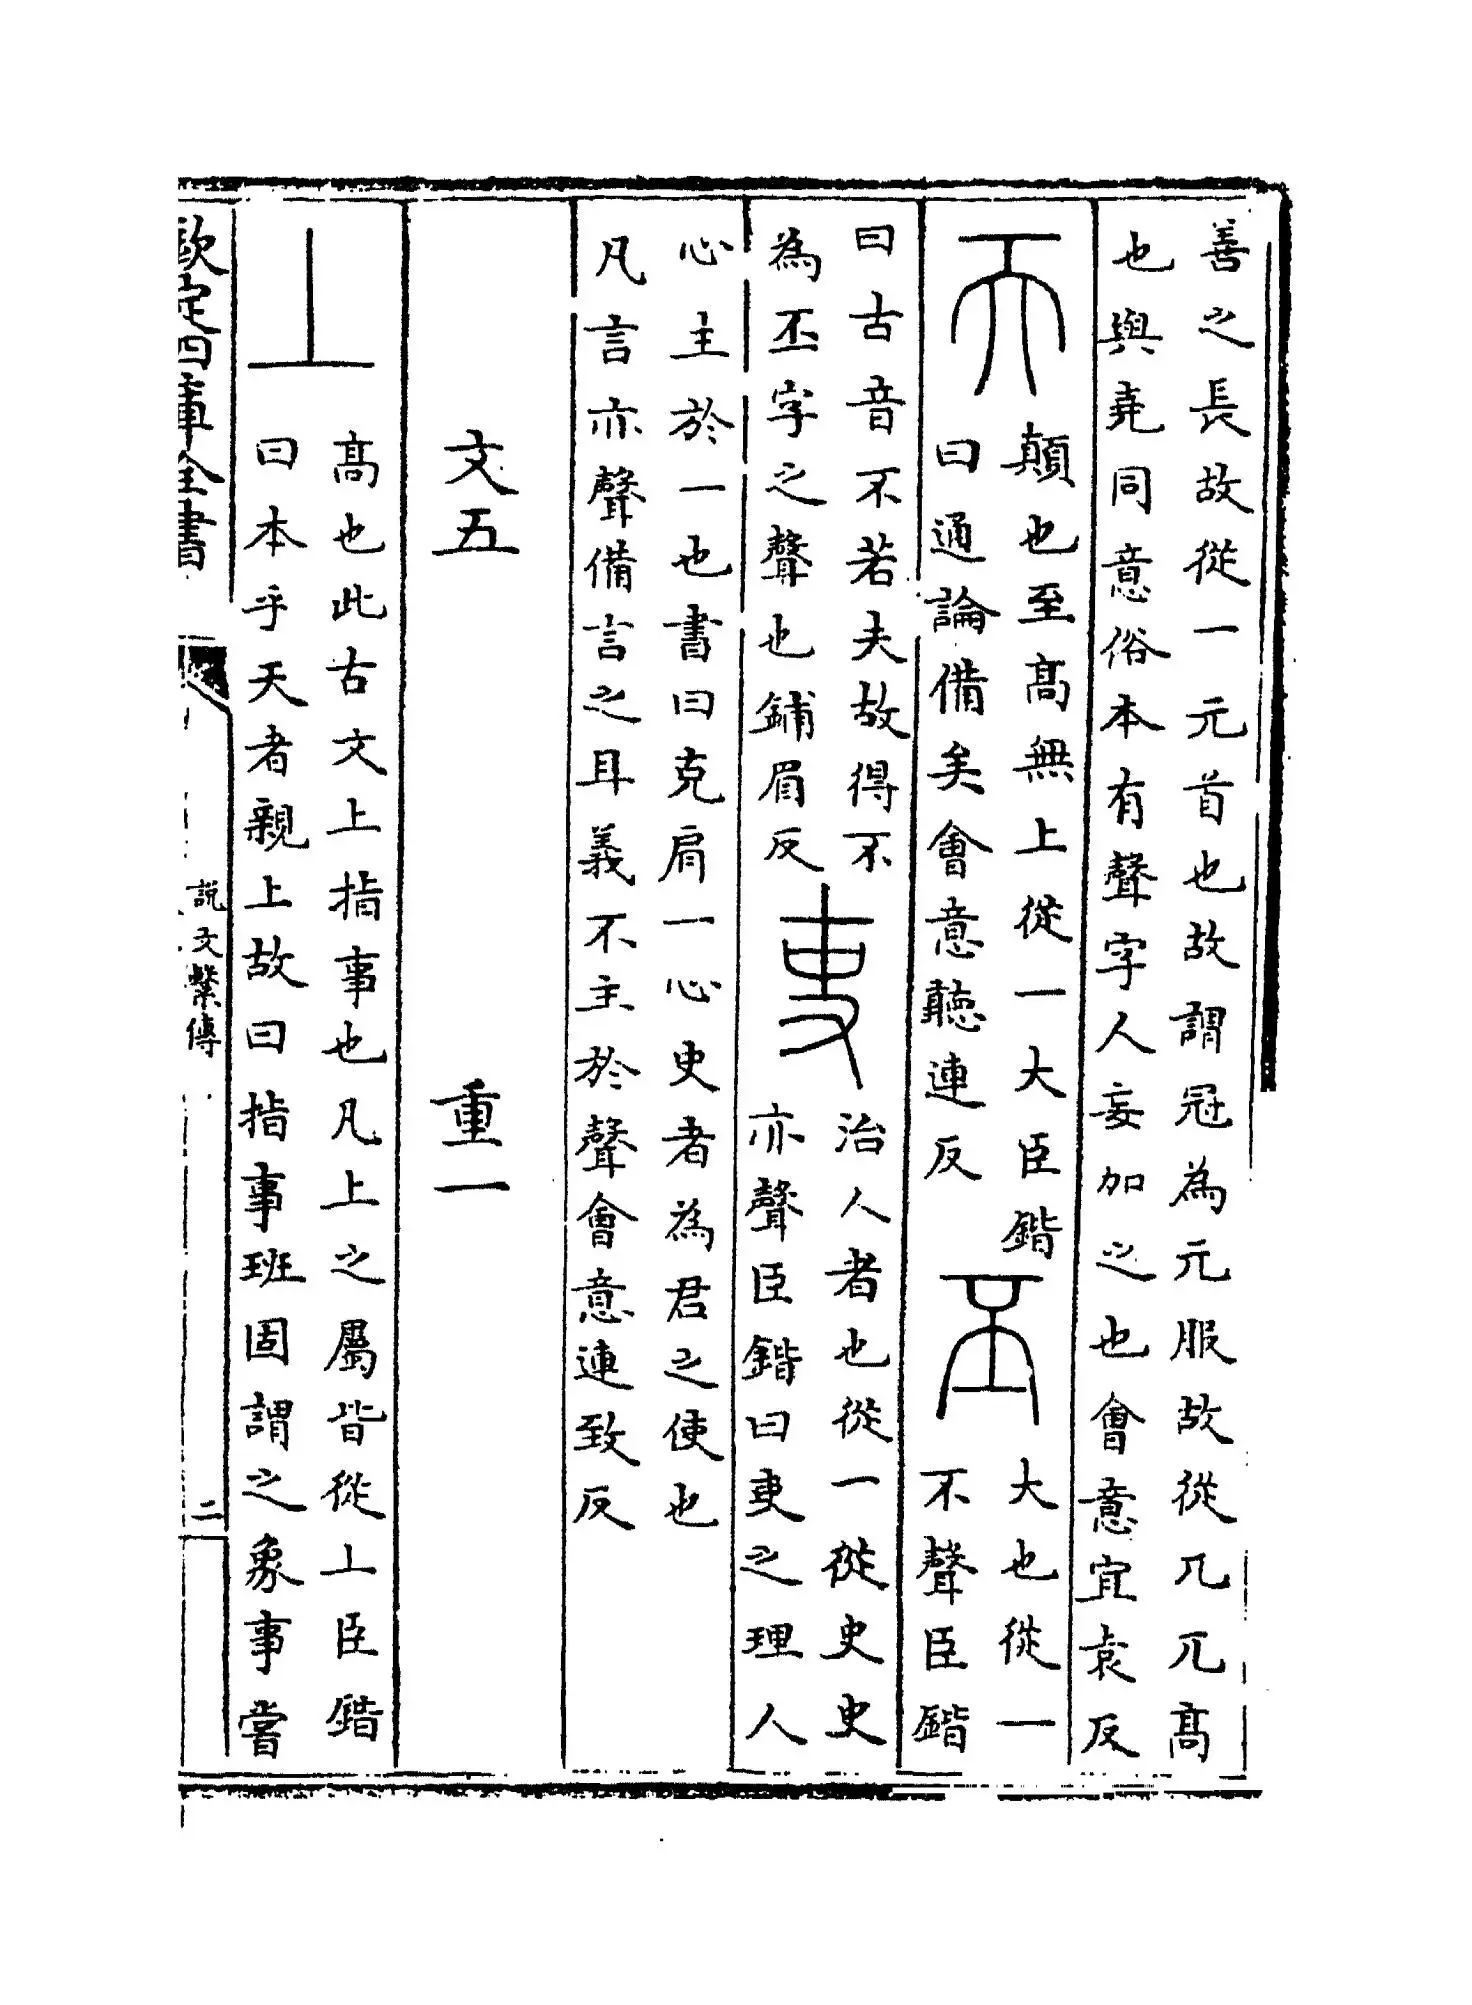 善之長故從一元首也故謂冠為元服故從兀兀高
也與堯同意俗本有聲字人妄加之也會意宜袁反
天
顛也至高無上從一大臣鍇
曰通論備矣會意聽連反
丕
大也從一
不聲臣鍇
曰古音不若夫故得不
為丕字之聲也鋪眉反
吏
治人者也從一從史史
亦聲臣鍇曰吏之理人
心主於一也書曰克肩一心史者為君之使也
凡言亦聲備言之耳義不主於聲會意連致反
文五 重一
丄
高也此古文上指事也凡上之屬皆從丄臣鍇
曰本乎天者親上故曰指事班固謂之象事嘗
欽定四庫全書
說文繫傳
二